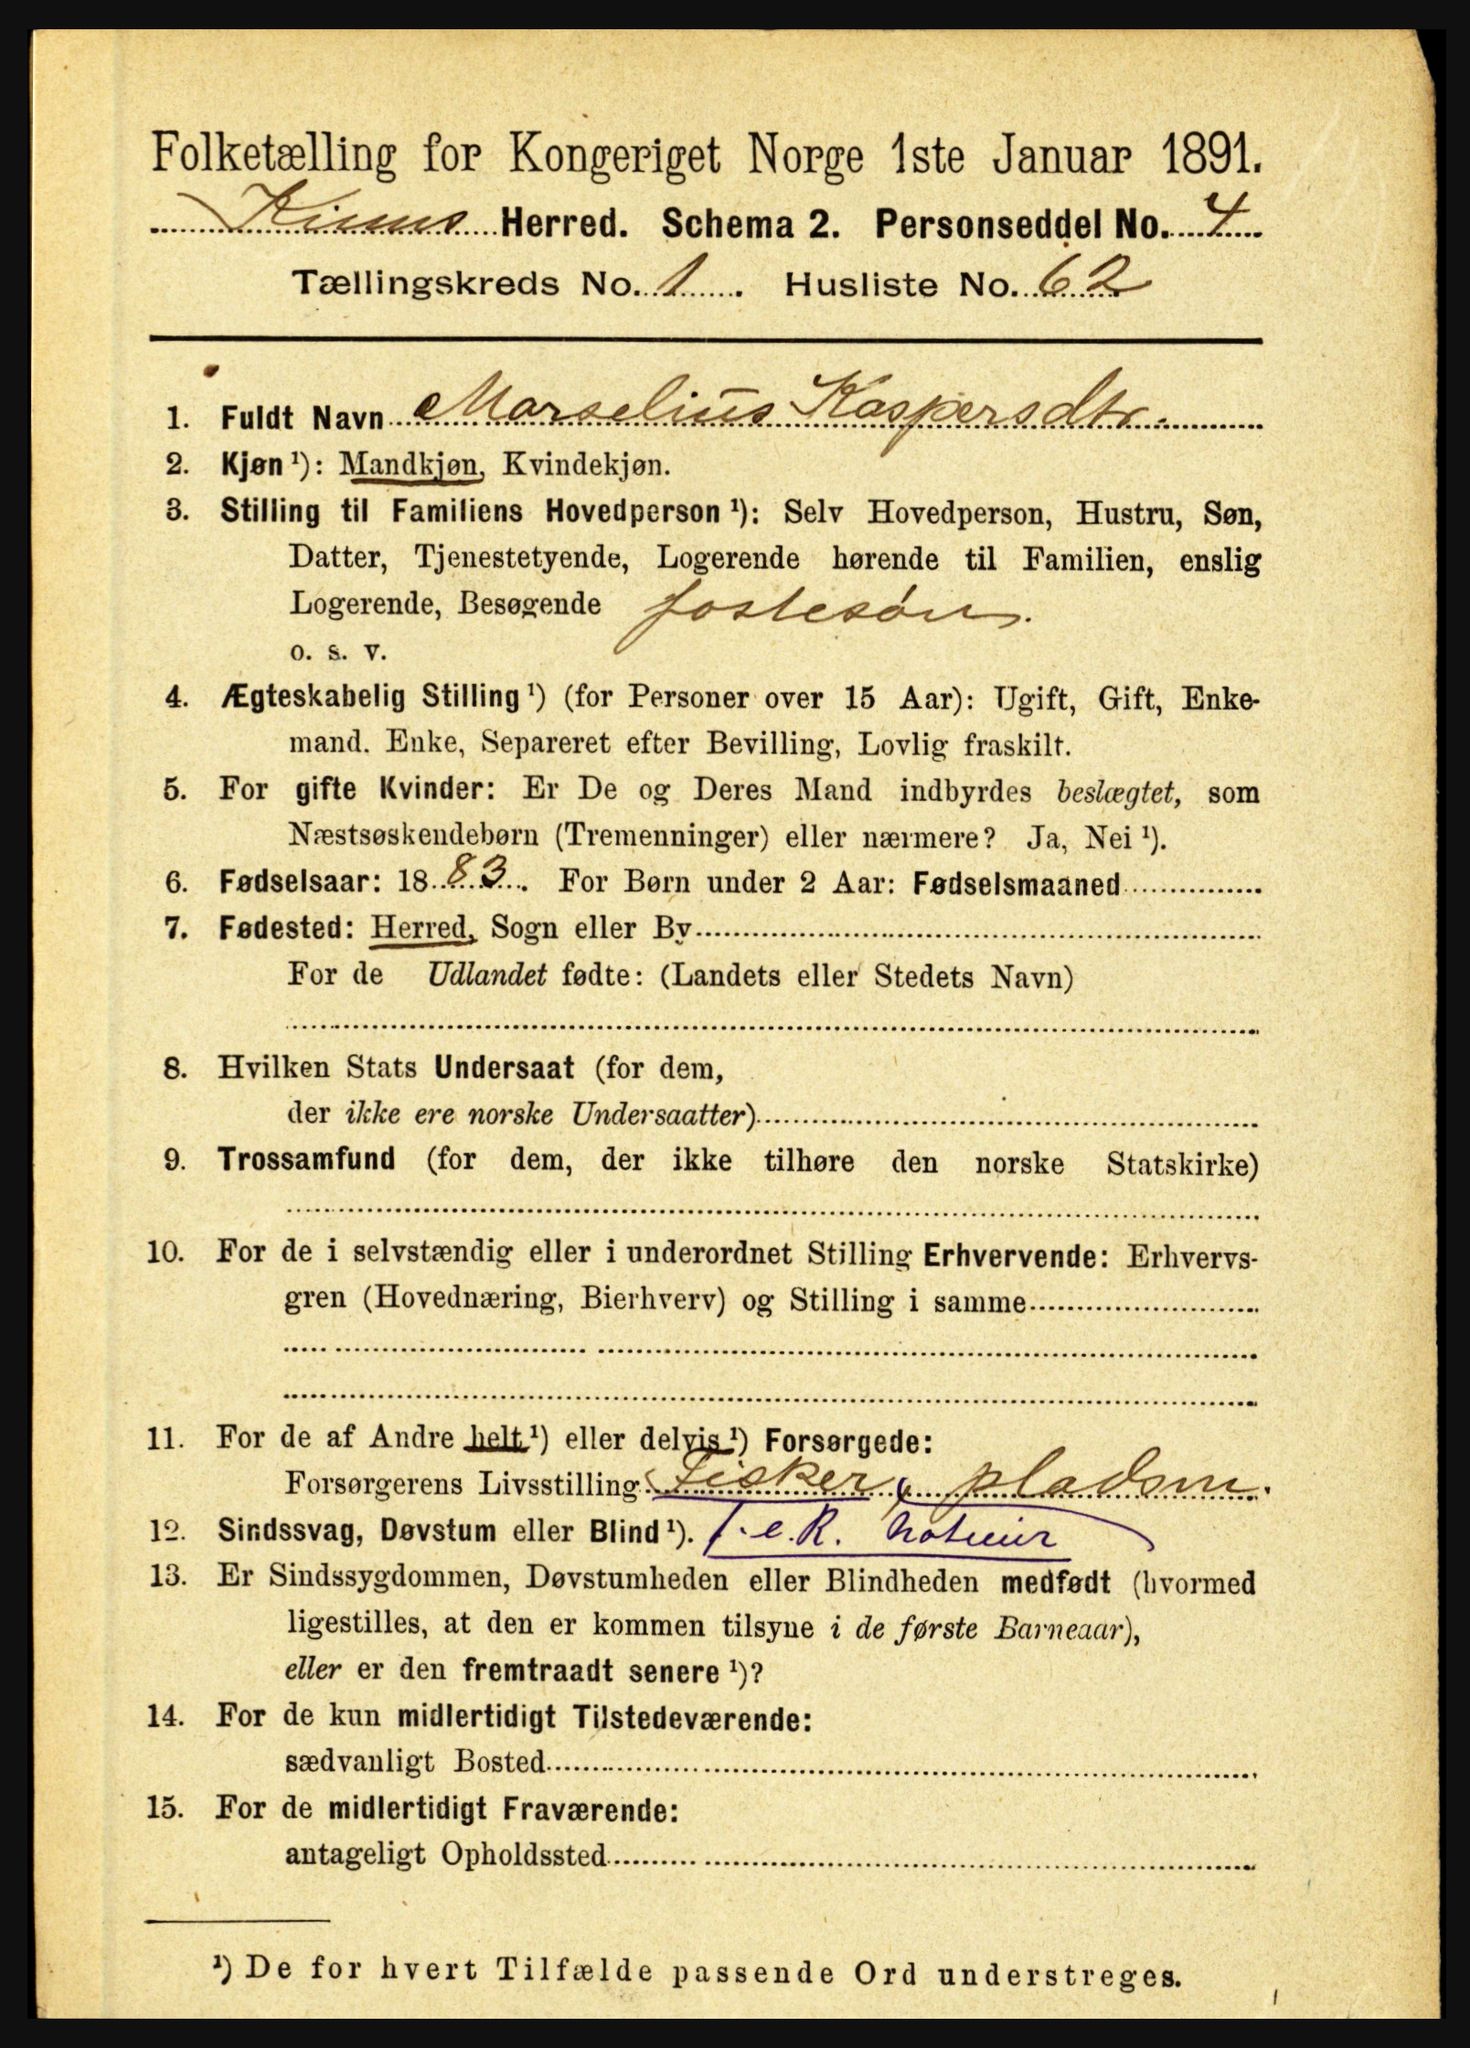 Folketælling for Kongeriget Norge 1ste Januar 1891.
Kinns Herred. Schema 2. Personseddel No. 4
Tællingskreds No. 1. Husliste No. 62
1. Fuldt Navn Marselius Kaspersdtr.
2. Kjøn ¹): Mandkjøn, Kvindekjøn.
3. Stilling til Familiens Hovedperson ¹): Selv Hovedperson, Hustru, Søn,
Datter, Tjenestetyende, Logerende hørende til Familien, enslig
Logerende, Besøgende fostesøn.
o. s. v.
4. Ægteskabelig Stilling ¹) (for Personer over 15 Aar): Ugift, Gift, Enke-
mand. Enke, Separeret efter Bevilling, Lovlig fraskilt.
5. For gifte Kvinder: Er De og Deres Mand indbyrdes beslægtet, som
Næstsøskendebørn (Tremenninger) eller nærmere? Ja, Nei ¹).
6. Fødselsaar: 1883. For Børn under 2 Aar: Fødselsmaaned
7. Fødested: Herred, Sogn eller By
For de Udlandet fødte: (Landets eller Stedets Navn)
8. Hvilken Stats Undersaat (for dem,
der ikke ere norske Undersaatter)
9. Trossamfund (for dem, der ikke tilhøre den norske Statskirke)
10. For de i selvstændig eller i underordnet Stilling Erhvervende: Erhvervs-
gren (Hovednæring, Bierhverv) og Stilling i samme
11. For de af Andre helt ¹) eller delvis ¹) Forsørgede:
Forsørgerens Livsstilling Fisker, pladsm.
12. Sindssvag, Døvstum eller Blind ¹).
13. Er Sindssygdommen, Døvstumheden eller Blindheden medfødt (hvormed
ligestilles, at den er kommen tilsyne i de første Barneaar),
eller er den fremtraadt senere ¹)?
14. For de kun midlertidigt Tilstedeværende:
sædvanligt Bosted
15. For de midlertidigt Fraværende:
antageligt Opholdssted
¹) De for hvert Tilfælde passende Ord understreges.